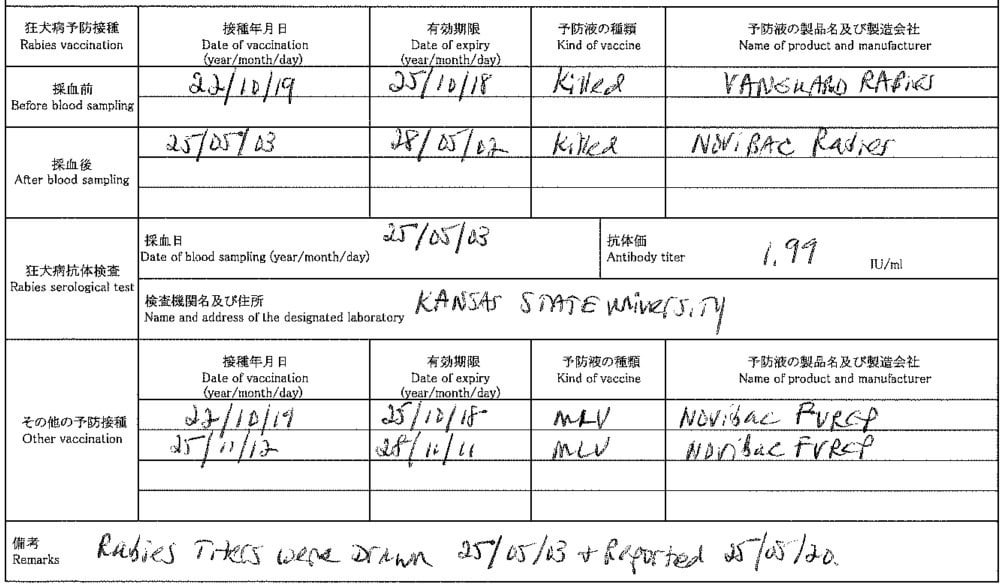 狂犬病予防接種 接種年月日 有効期限 予防液の種類 予防液の製品名及び製造会社
Rabies vaccination Date of vaccination Date of expiry Kind of vaccine Name of product and manufacturer
(year/month/day) (year/month/day)
採血前 22/10/19 25/10/18 Killed VANGUARD RABies
Before blood sampling
25/05/03 28/05/02 Killed NOViBAC Rabies
採血後
After blood sampling
採血日 25/05/03 抗体価 1.99
Date of blood sampling (year/month/day) Antibody titer IU/ml
狂犬病抗体検査
Rabies serological test
検査機関名及び住所 KANSAS STATE UNIVERSITY
Name and address of the designated laboratory
接種年月日 有効期限 予防液の種類 予防液の製品名及び製造会社
Date of vaccination Date of expiry Kind of vaccine Name of product and manufacturer
(year/month/day) (year/month/day)
その他の予防接種 22/10/19 25/10/18 MLV NOVibac FVRCP
Other vaccination 25/11/12 28/11/11 MLV NOVibac FVRCP
備考
Remarks Rabies Titers were Drawn 25/05/03 + Reported 25/05/20.